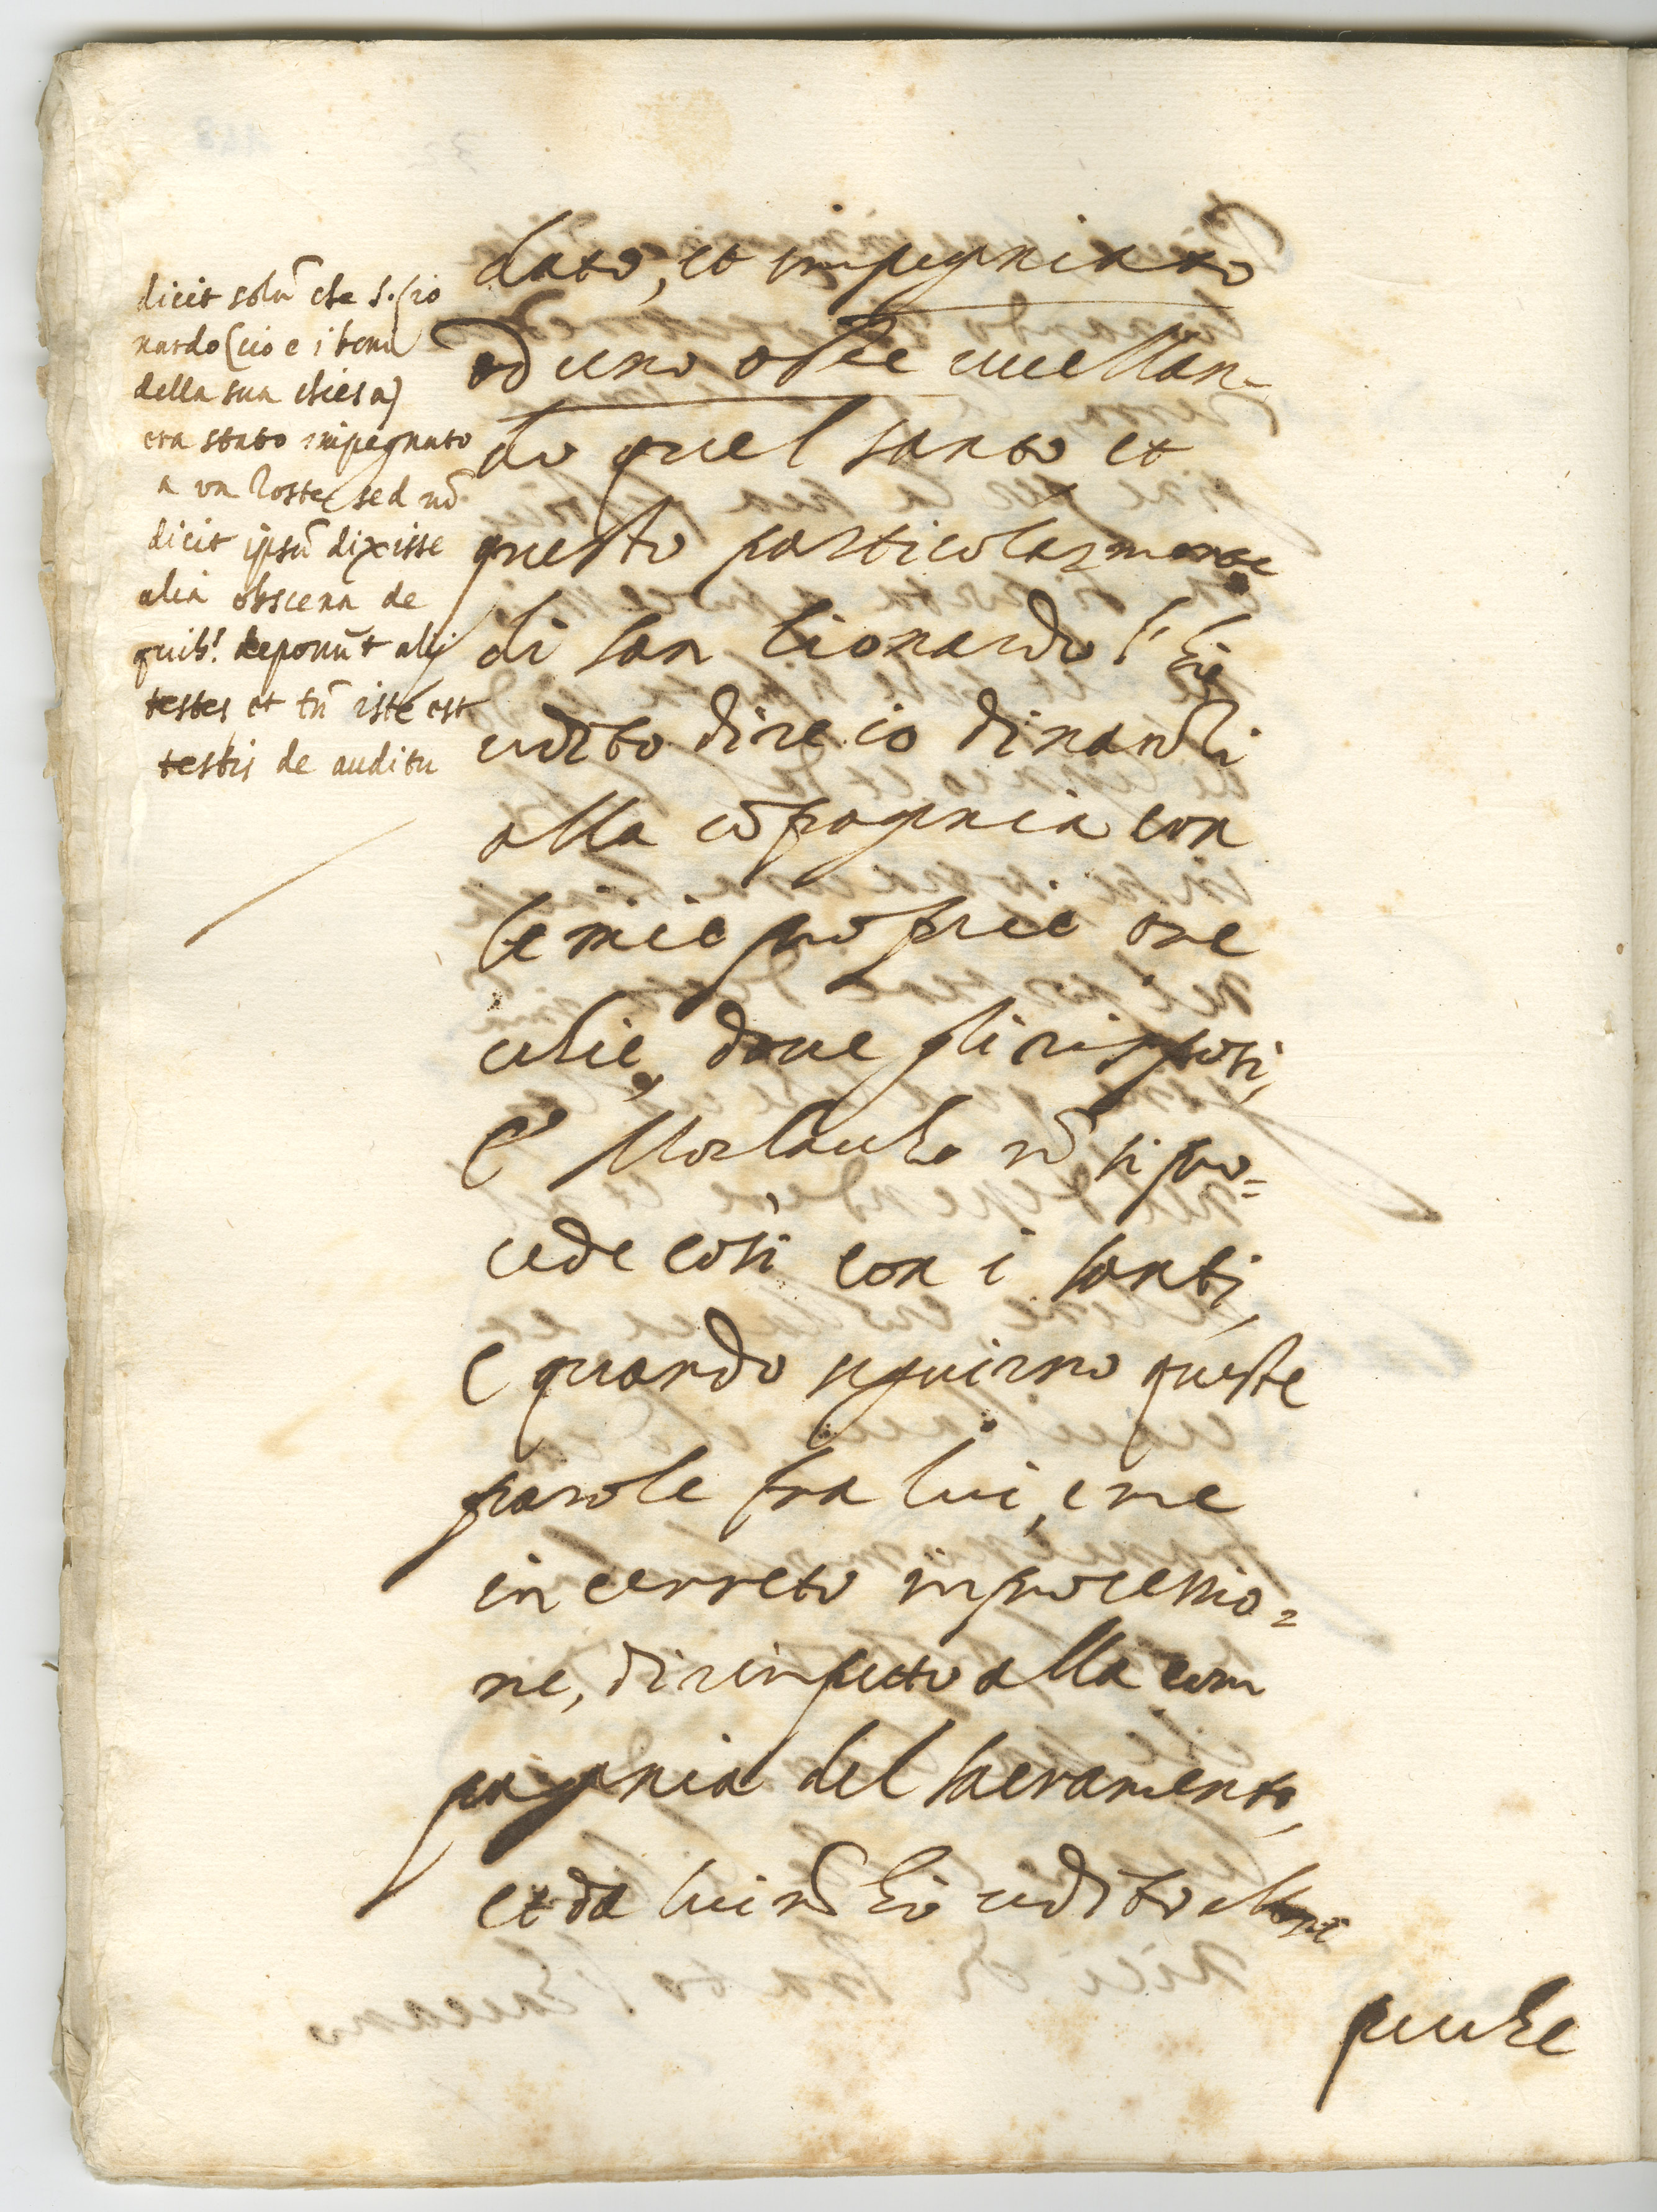 dicit solũ che S. Lio
nardo (cio e i beni
della sua chiesa)
era stato impegnato
a un loste sed nõ
dicit ipsũ dixisse
alia obscena de
quib. deponũt alij
testes et tñ iste est
testis de auditu
dato, et impegniato
ad uno oste uccellan-
do quel santo et
questo particolarmente
di san Lionardo l'hò
udito dire io dinanzi
alla cõpagnia con
le mie proprie ore
chie, doue gli risposi,
ò Morlacho nõ si pro=
cede così con i santi,
e quando seguirno queste
parole fra lui, e me
in cerreto in processio=
ne, dirimpetto alla com
pagnia del sacramento,
et da lui nõ hò udito altro
perche